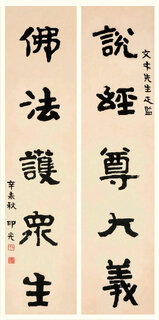 先生正鑑
說經尊大義
佛法護眾生
辛未秋 印光